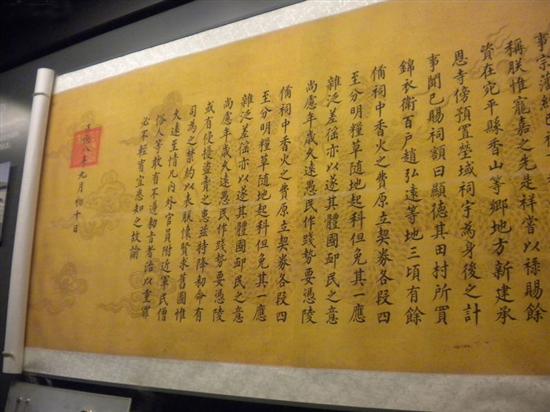 事宗藩
稱朕惟寵嘉之先是祥嘗以祿賜餘
資在宛平縣香山等鄉地方新建承
恩寺傍預置塋域祠宇為身後之計
事聞已賜祠額曰顯德其田村所買
錦衣衛百戶趙弘遠等地三頃有餘
備祠中香火之費原立契券各段四
至分明糧草隨地起科但免其一應
雜泛差徭亦以遂其體國卹民之意
尚慮年歲久遠愚民作踐勢要憑陵
備祠中香火之費原立契券各段四
至分明糧草隨地起科但免其一應
雜泛差徭亦以遂其體國卹民之意
尚慮年歲久遠愚民作踐勢要憑陵
或有使接盜賣之患茲特降勅命有
司為之禁約以表朕懷賢求舊圖惟
久遠至情凡內外官員附近軍民僧
俗人等敢有不遵勅旨者治以重罪
必不輕宥宜悉知之故諭
八年九月初十日